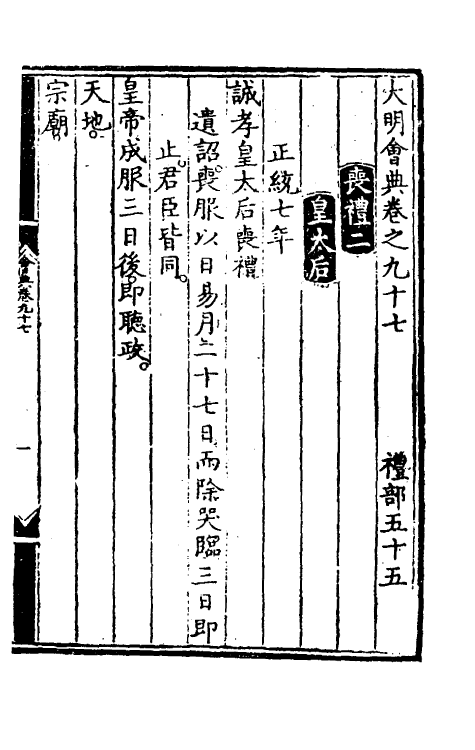 大明會典卷之九十七 禮部五十五
喪禮二
皇太后
正統七年
誠孝皇太后喪禮
遺詔。喪服以日易月。二十七日而除。哭臨三日即
止。君臣皆同。
皇帝成服三日後。即聽政。
天地。
宗廟。
會典卷九十七
一